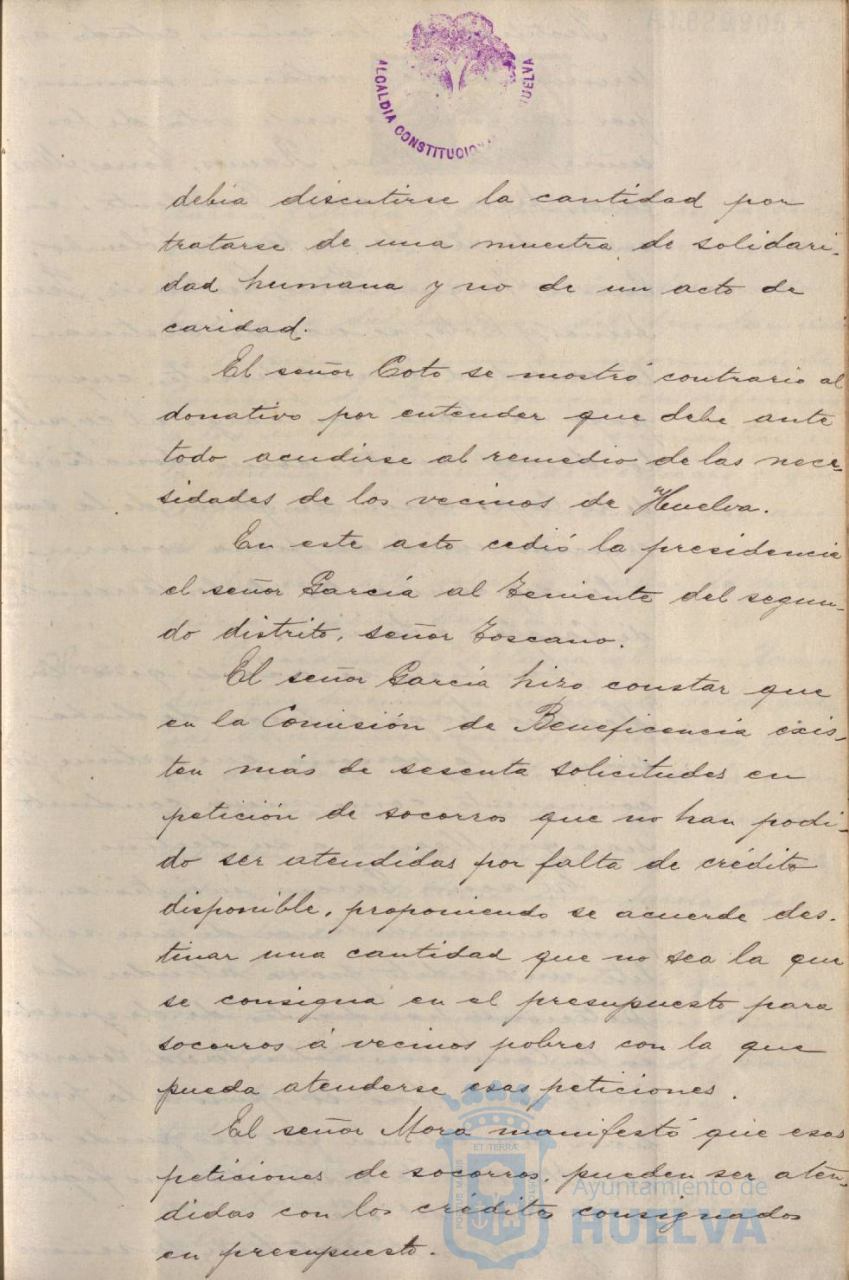 ALCALDIA CONSTITUCIONAL HUELVA
debía discutirse la cantidad por
tratarse de una muestra de solidari-
dad humana y no de un acto de
caridad.
El señor Coto se mostró contrario al
donativo por entender que debe ante
todo acudirse al remedio de las nece-
sidades de los vecinos de Huelva.
En este acto cedió la presidencia
el señor García al Teniente del segun-
do distrito, señor Toscano.
El señor García hizo constar que
en la Comisión de Beneficencia exis-
ten más de sesenta solicitudes en
petición de socorros que no han podi-
do ser atendidas por falta de crédito
disponible, proponiendo se acuerde des-
tinar una cantidad que no sea la que
se consigna en el presupuesto para
socorros á vecinos pobres con la que
pueda atenderse esas peticiones.
El señor Mora manifestó que esas
peticiones de socorros, pueden ser aten-
didas con los créditos consignados
en presupuesto.
ET TERRA
Ayuntamiento de
HUELVA